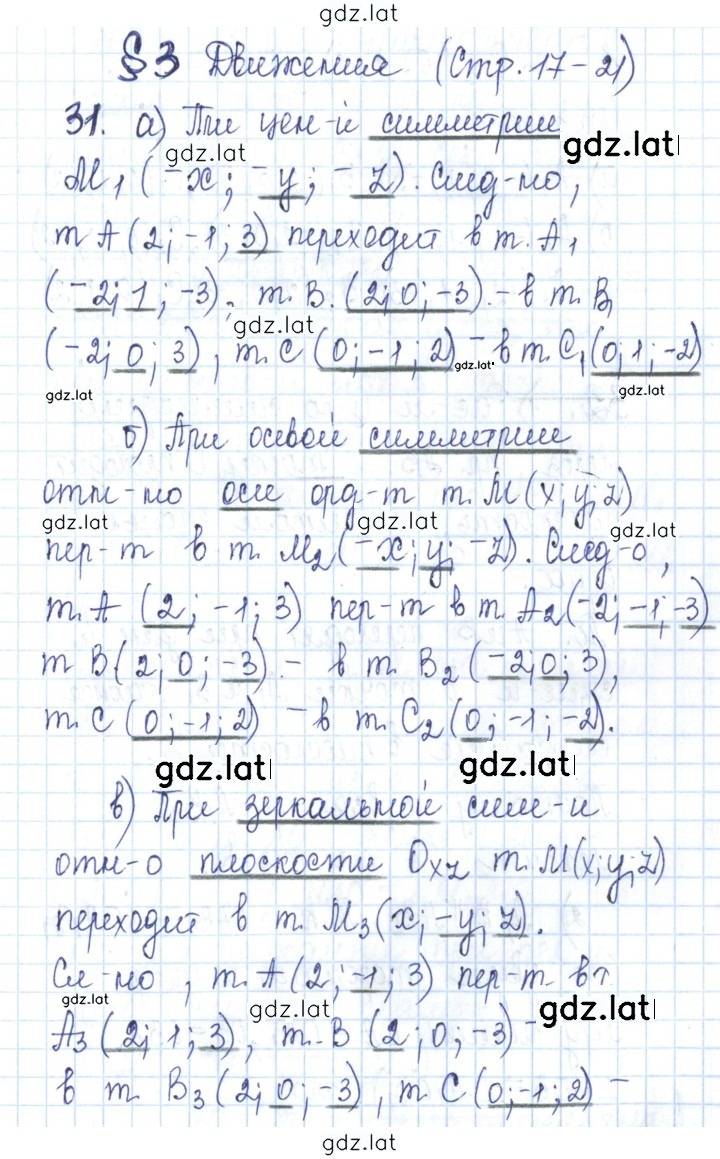 gdz.lat
§3 Движения (Стр. 17-21)
31. а) При цен-й симметрии
gdz.lat gdz.lat
M₁ (-x; -y; -z). След-но,
т A (2; -1; 3) переходит в т. A₁
(-2; 1; -3), т. B. (2; 0; -3) - в т. B₁
gdz.lat
(-2; 0; 3), т. C (0; -1; 2) - в т. C₁ (0; 1; -2)
gdz.lat gdz.lat gdz.lat
б) При осевой симметрии
отн-но оси орд-т т. M (x; y; z)
gdz.lat gdz.lat gdz.lat
пер-т в т. M₂ (-x; y; -z). След-о,
т. A (2; -1; 3) пер-т в т. A₂ (-2; -1; -3)
т B (2; 0; -3) - в т. B₂ (-2; 0; 3),
т. C (0; -1; 2) - в т. C₂ (0; -1; -2).
gdz.lat gdz.lat
в) При зеркальной сим-и
отн-о плоскости Oxz т. M (x; y; z)
переходит в т. M₃ (x; -y; z).
Сл-но, т. A (2; -1; 3) пер-т в т
gdz.lat gdz.lat gdz.lat
A₃ (2; 1; 3), т. B (2; 0; -3) -
в т. B₃ (2; 0; -3), т C (0; -1; 2) -
gdz.lat